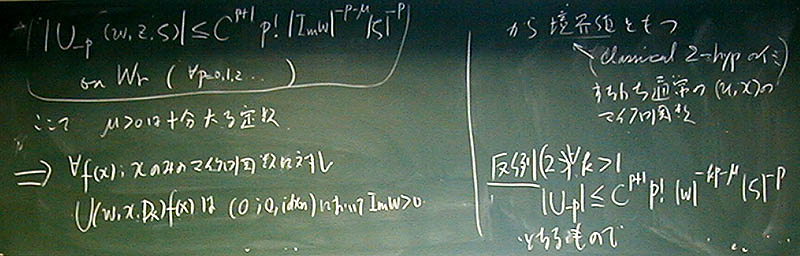 |U_{-p}(w, z, ζ)| ≤ C^{p+1} p! |Im w|^{-p-μ} |ζ|^{-p}
on W_r ( ∀p=0,1,2... )
ここで μ>0は十分大きな定数
⇒ ∀f(x): xのみのマイクロ函数に対し
U(w, x, D_x)f(x) は (0; 0, idx_n) において Im w>0
から 境界値をもつ
(Classical 2-hyp のとき)
すなわち通常の (u, x)の
マイクロ函数
反例(2) ∀k>1
|U_{-p}| ≤ C^{p+1} p! |w|^{-kp-μ} |ζ|^{-p}
となるもので